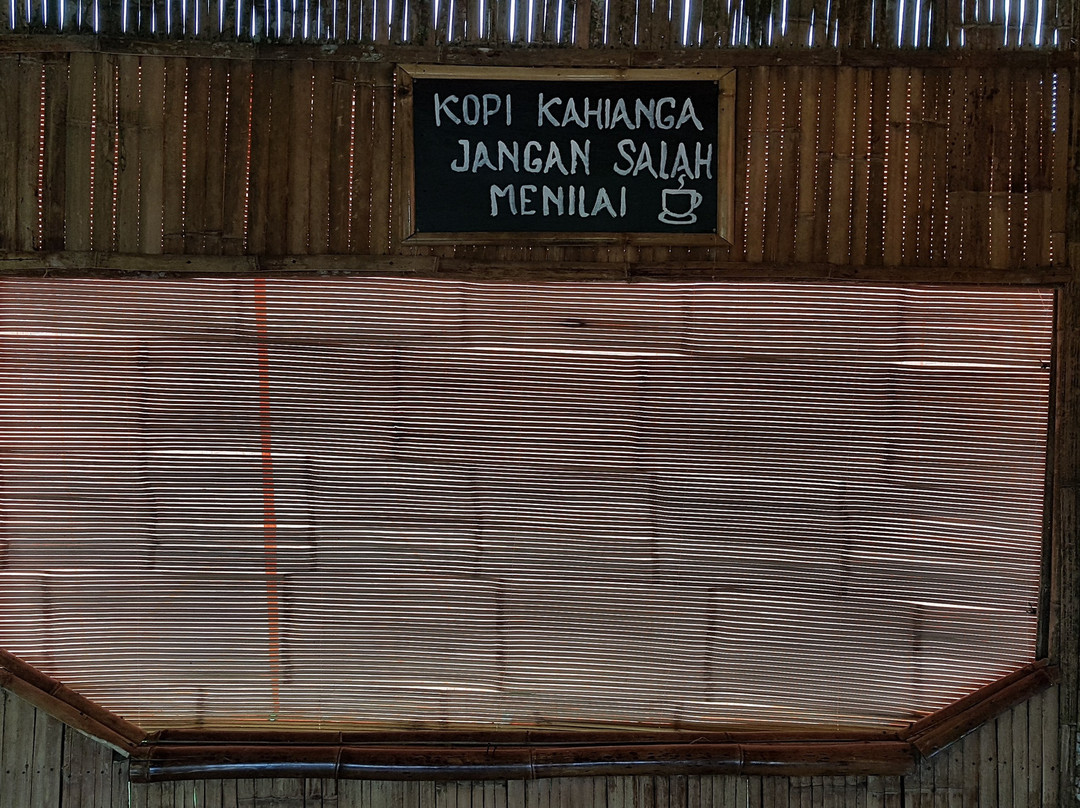 KOPI KAHIANGA
JANGAN SALAH
MENILAI